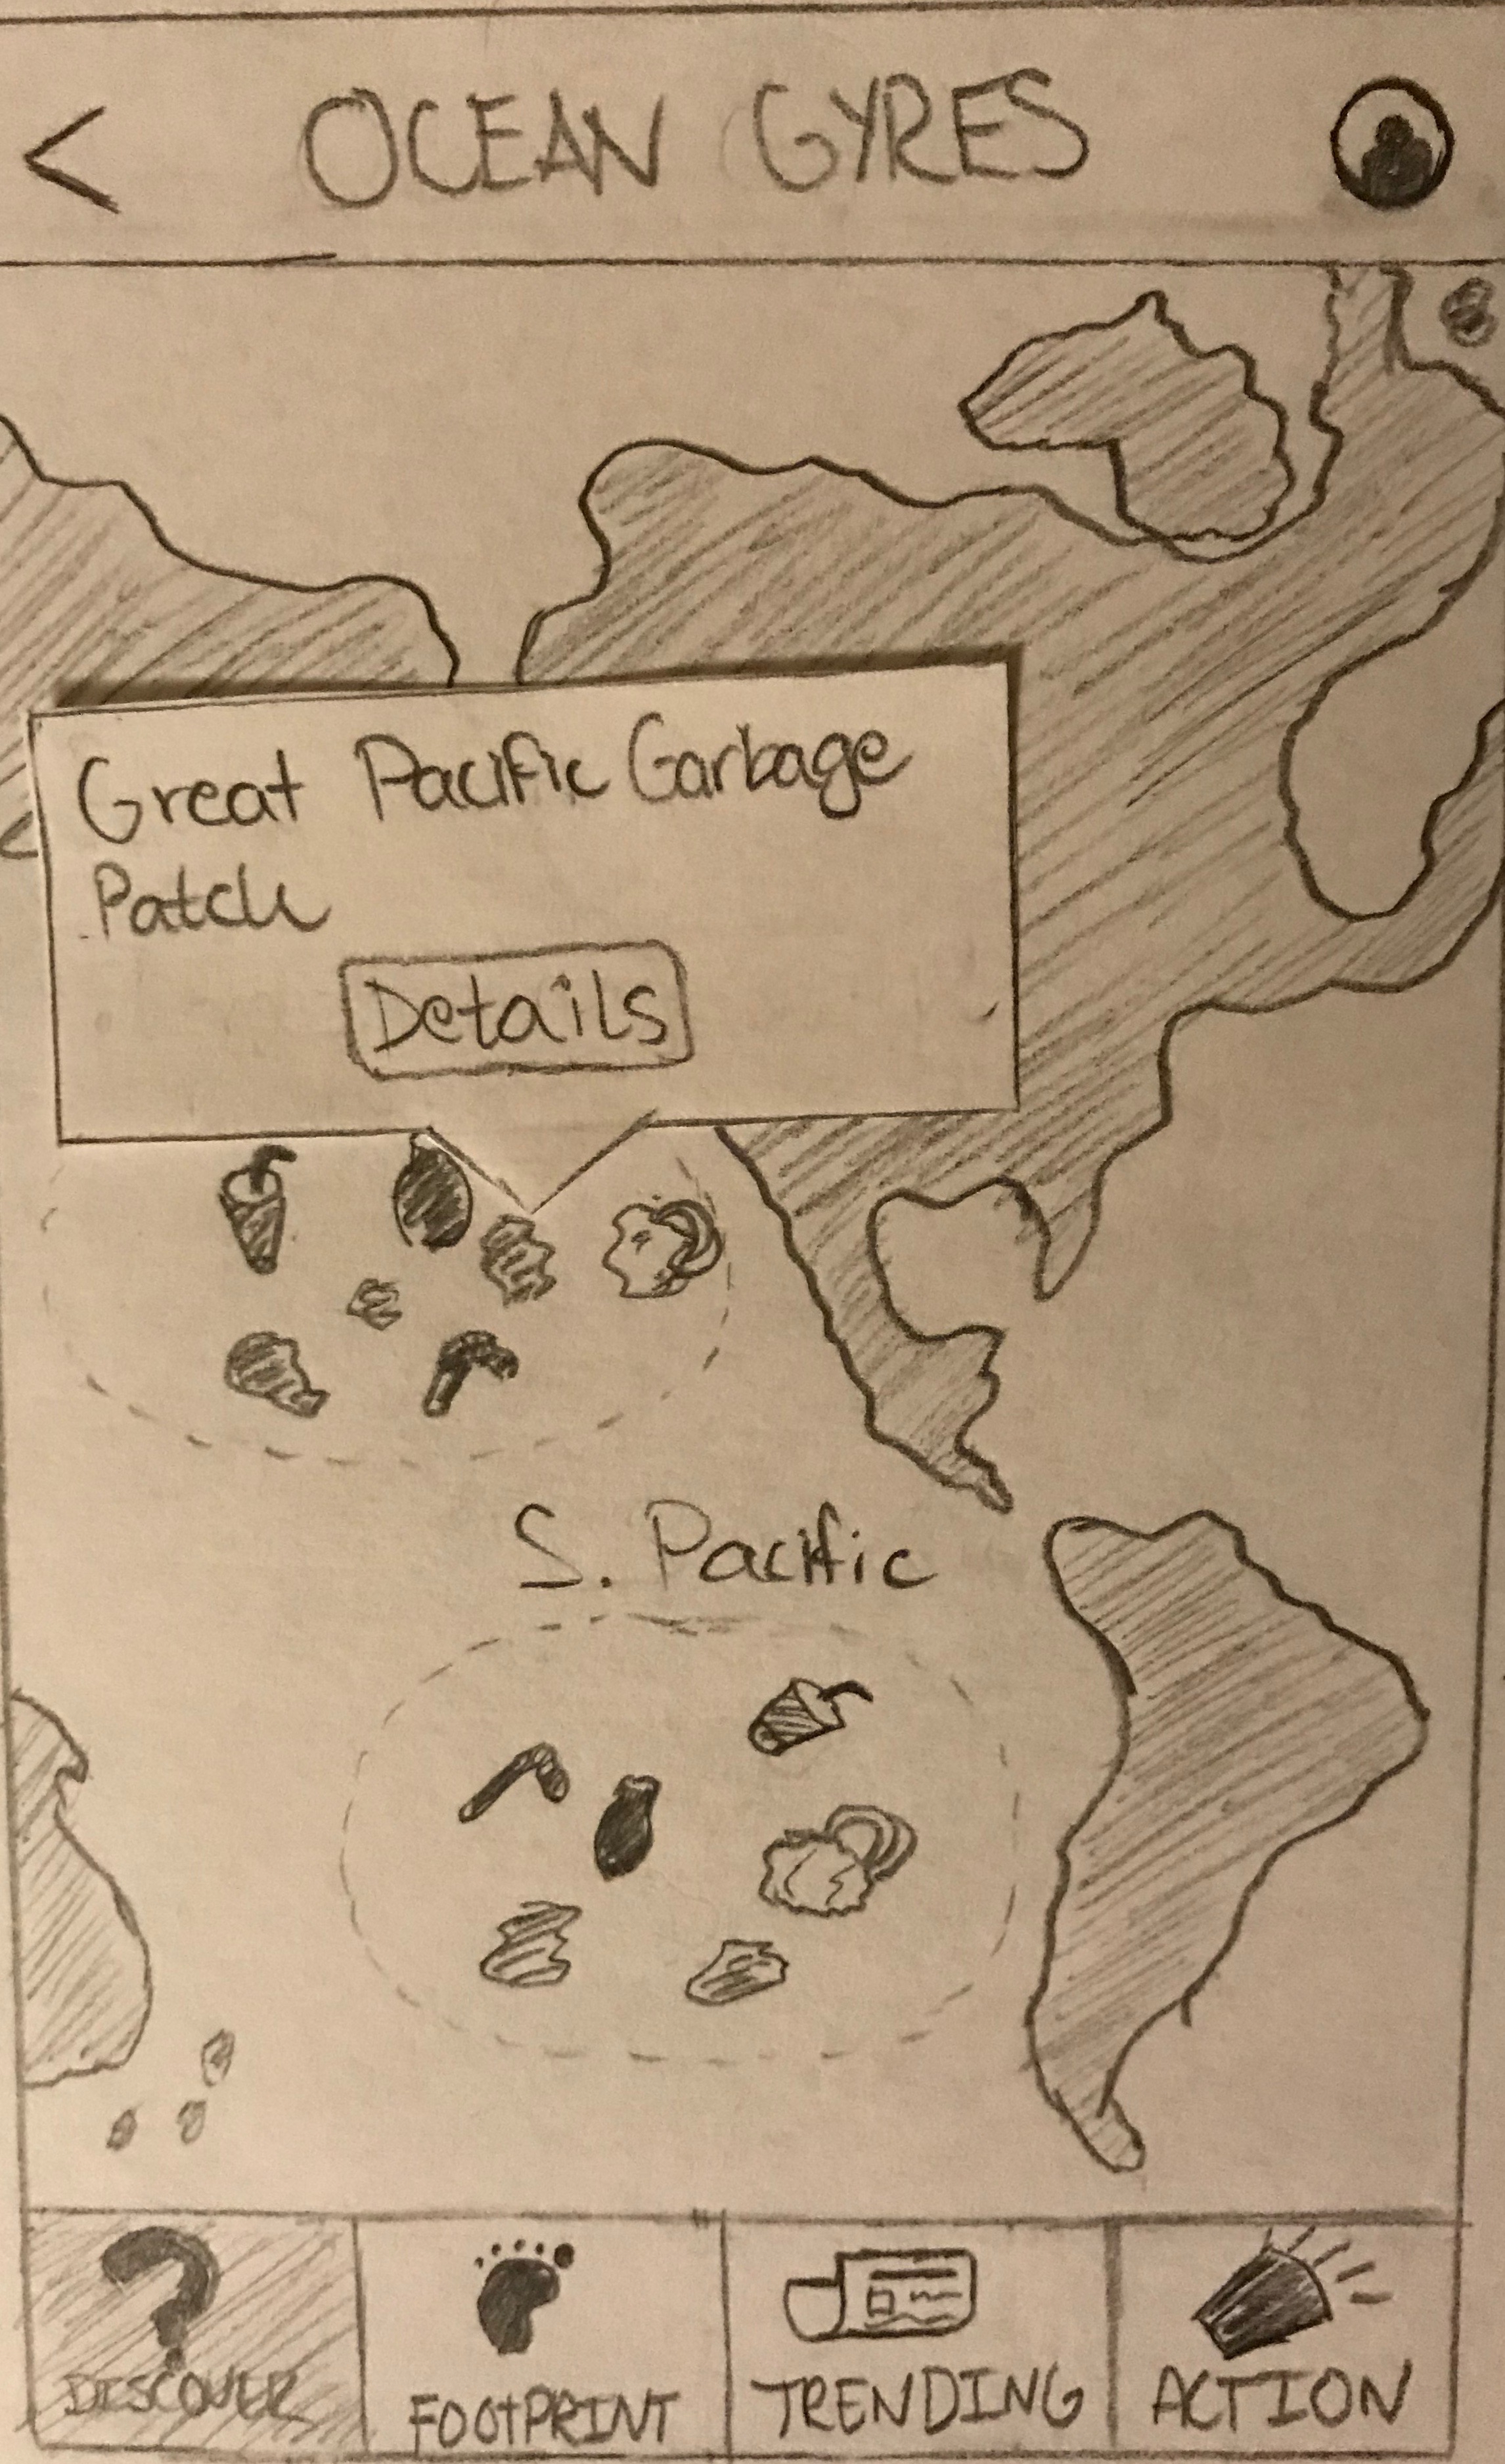 < OCEAN GYRES
Great Pacific Garbage
Patch
Details
S. Pacific
DISCOVER
FOOtPRINT
TRENDING
ACTION